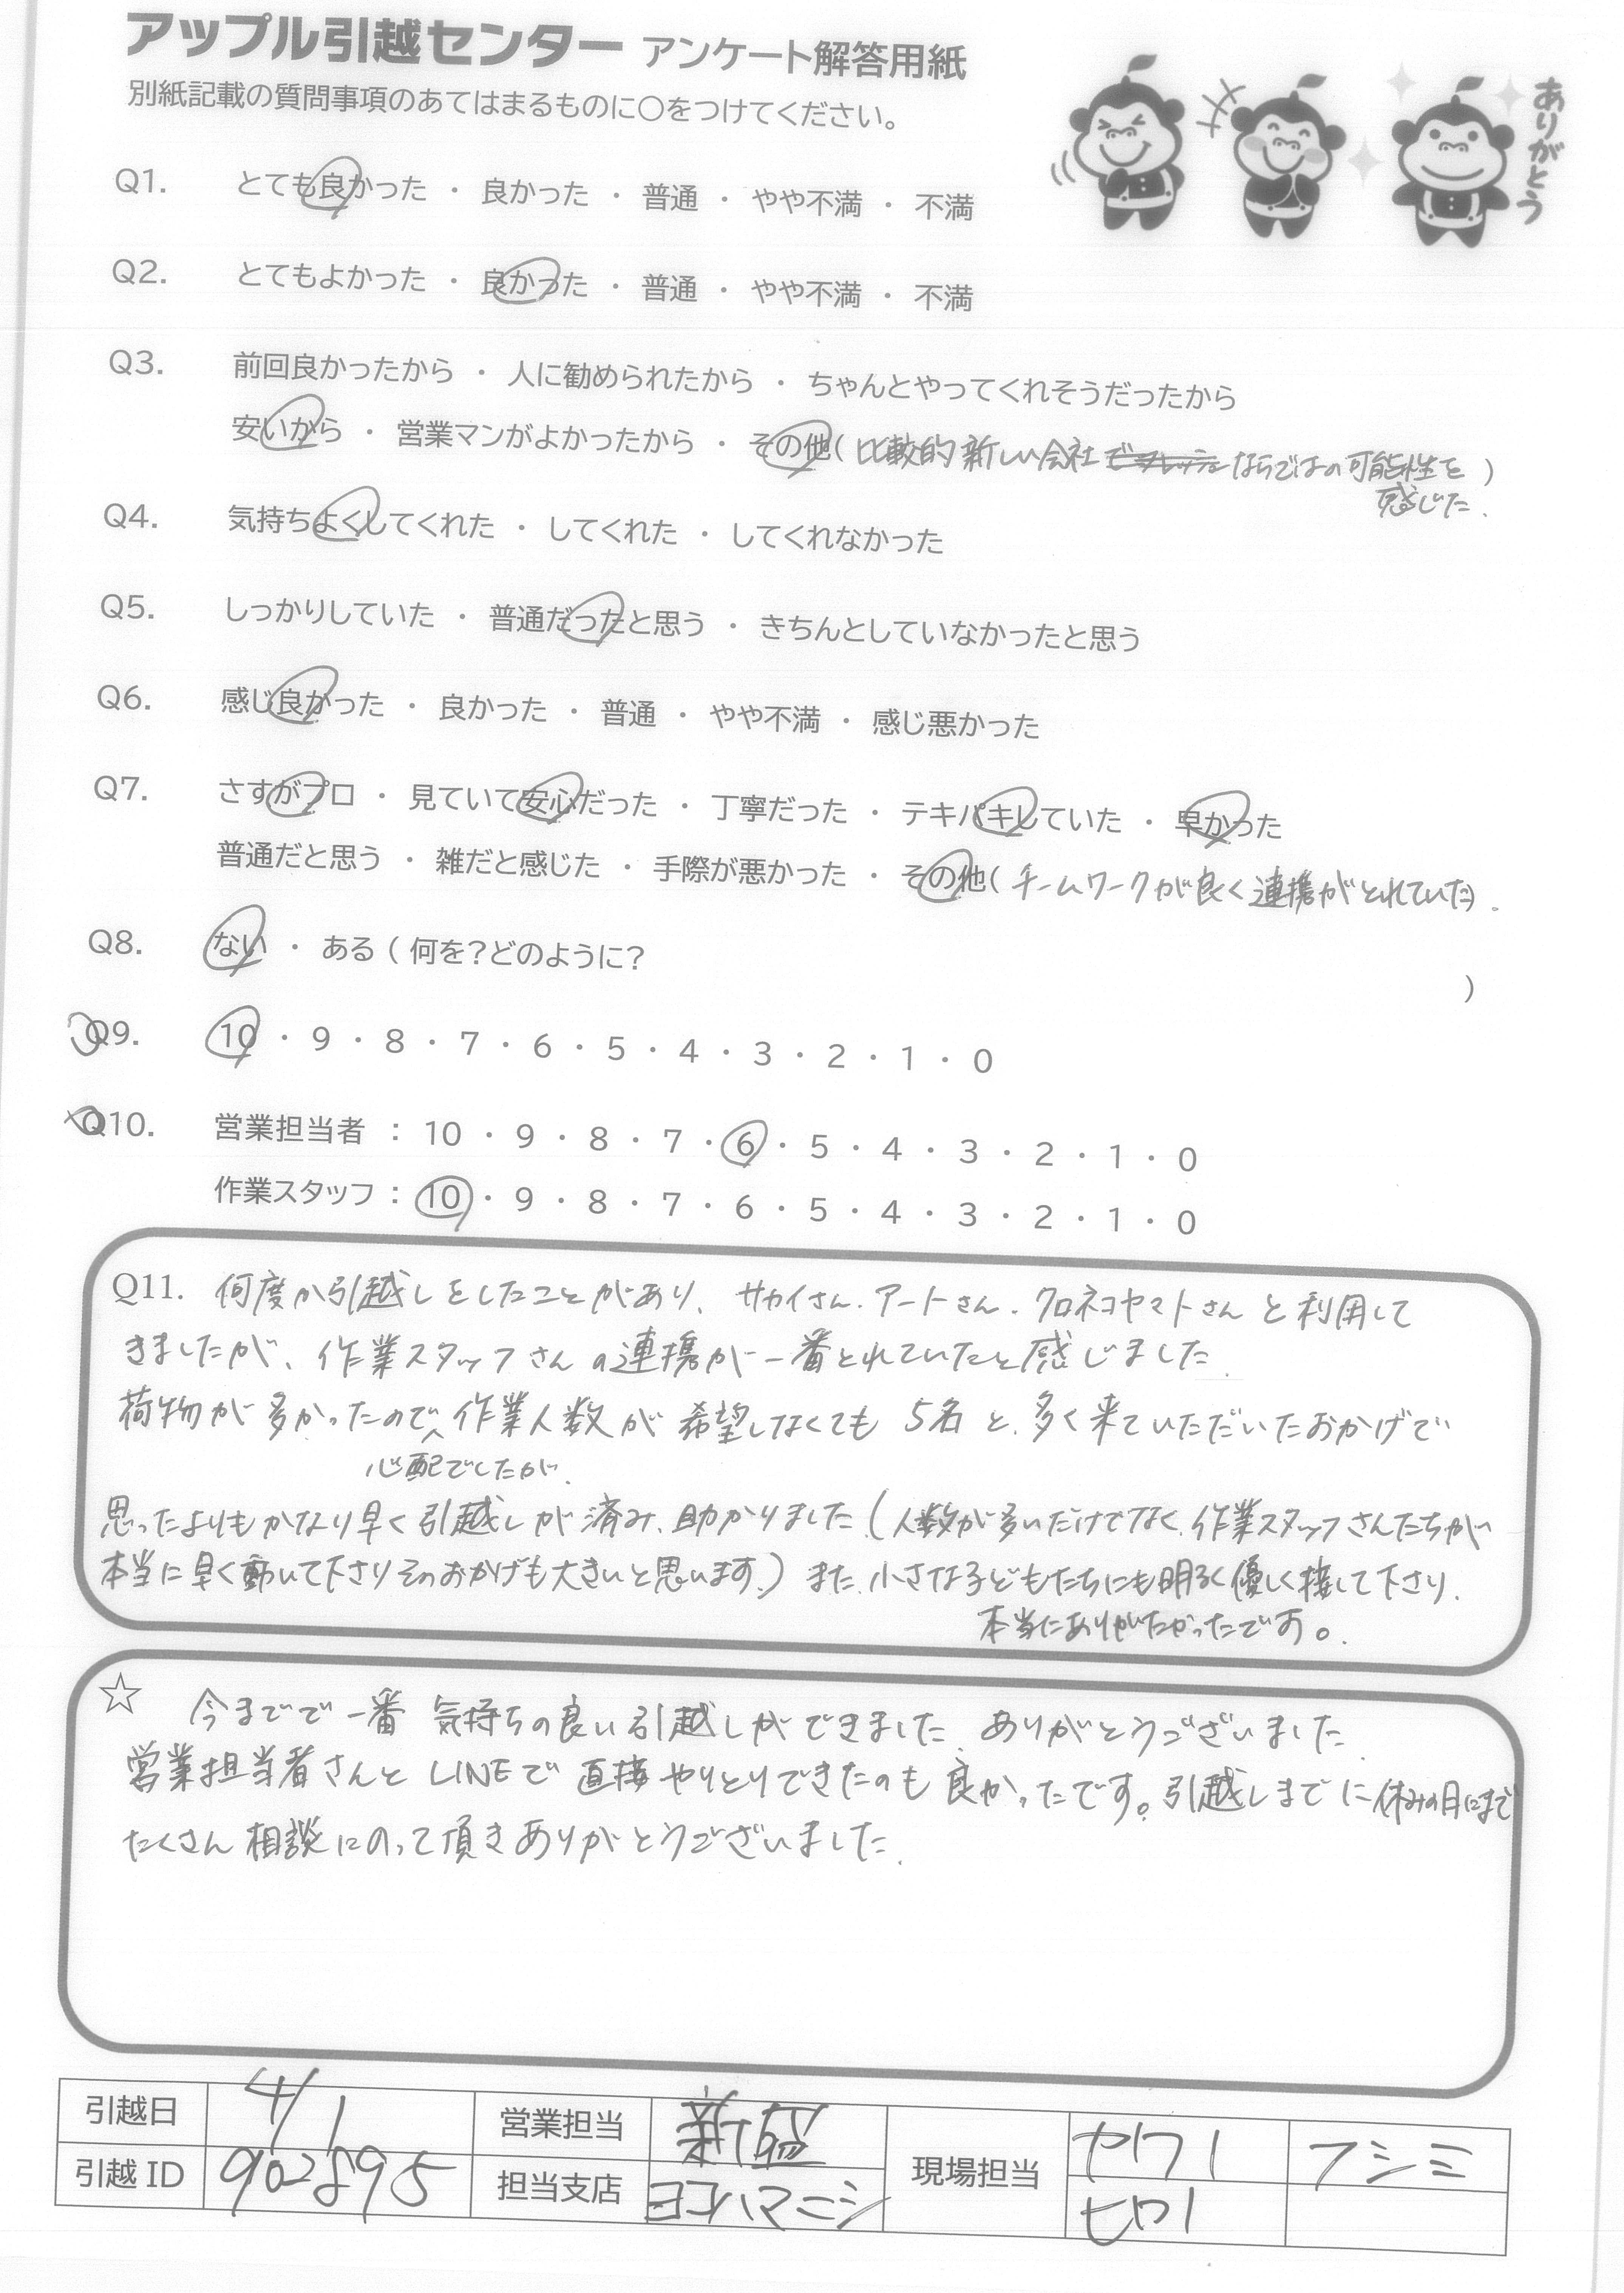 アップル引越センター アンケート解答用紙
別紙記載の質問事項のあてはまるものに〇をつけてください。
ありがとう
Q1. とても良かった ・ 良かった ・ 普通 ・ やや不満 ・ 不満
Q2. とてもよかった ・ 良かった ・ 普通 ・ やや不満 ・ 不満
Q3. 前回良かったから ・ 人に勧められたから ・ ちゃんとやってくれそうだったから
安いから ・ 営業マンがよかったから ・ その他( 比較的新しい会社ならではの可能性を )
感じた.
Q4. 気持ちよくしてくれた ・ してくれた ・ してくれなかった
Q5. しっかりしていた ・ 普通だったと思う ・ きちんとしていなかったと思う
Q6. 感じ良かった ・ 良かった ・ 普通 ・ やや不満 ・ 感じ悪かった
Q7. さすがプロ ・ 見ていて安心だった ・ 丁寧だった ・ テキパキしていた ・ 早かった
普通だと思う ・ 雑だと感じた ・ 手際が悪かった ・ その他( チームワークが良く連携がとれていた).
Q8. ない ・ ある ( 何を?どのように? )
Q9. 10 ・ 9 ・ 8 ・ 7 ・ 6 ・ 5 ・ 4 ・ 3 ・ 2 ・ 1 ・ 0
Q10. 営業担当者 : 10 ・ 9 ・ 8 ・ 7 ・ 6 ・ 5 ・ 4 ・ 3 ・ 2 ・ 1 ・ 0
作業スタッフ : 10 ・ 9 ・ 8 ・ 7 ・ 6 ・ 5 ・ 4 ・ 3 ・ 2 ・ 1 ・ 0
Q11. 何度か引越しをしたことがあり、サカイさん.アートさん.クロネコヤマトさんと利用して
きましたが、作業スタッフさんの連携が一番とれていたと感じました.
荷物が多かったので作業人数が希望しなくても5名と.多く来ていただいたおかげで
心配でしたが.
思ったよりもかなり早く引越しが済み、助かりました.(人数が多いだけでなく.作業スタッフさんたちが
本当に早く動いて下さりそのおかげも大きいと思います.) また.小さな子どもたちにも明るく優しく接して下さり.
本当にありがたかったです。.
☆ 今までで一番気持ちの良い引越しができました.ありがとうございました.
営業担当者さんとLINEで直接やりとりできたのも良かったです。引越しまでに休みの日にまで
たくさん相談にのって頂きありがとうございました.
引越日 4/1 営業担当 新盛 現場担当 ヤワノ フシミ
引越ID 902895 担当支店 ヨコハマニシ ヒロノ